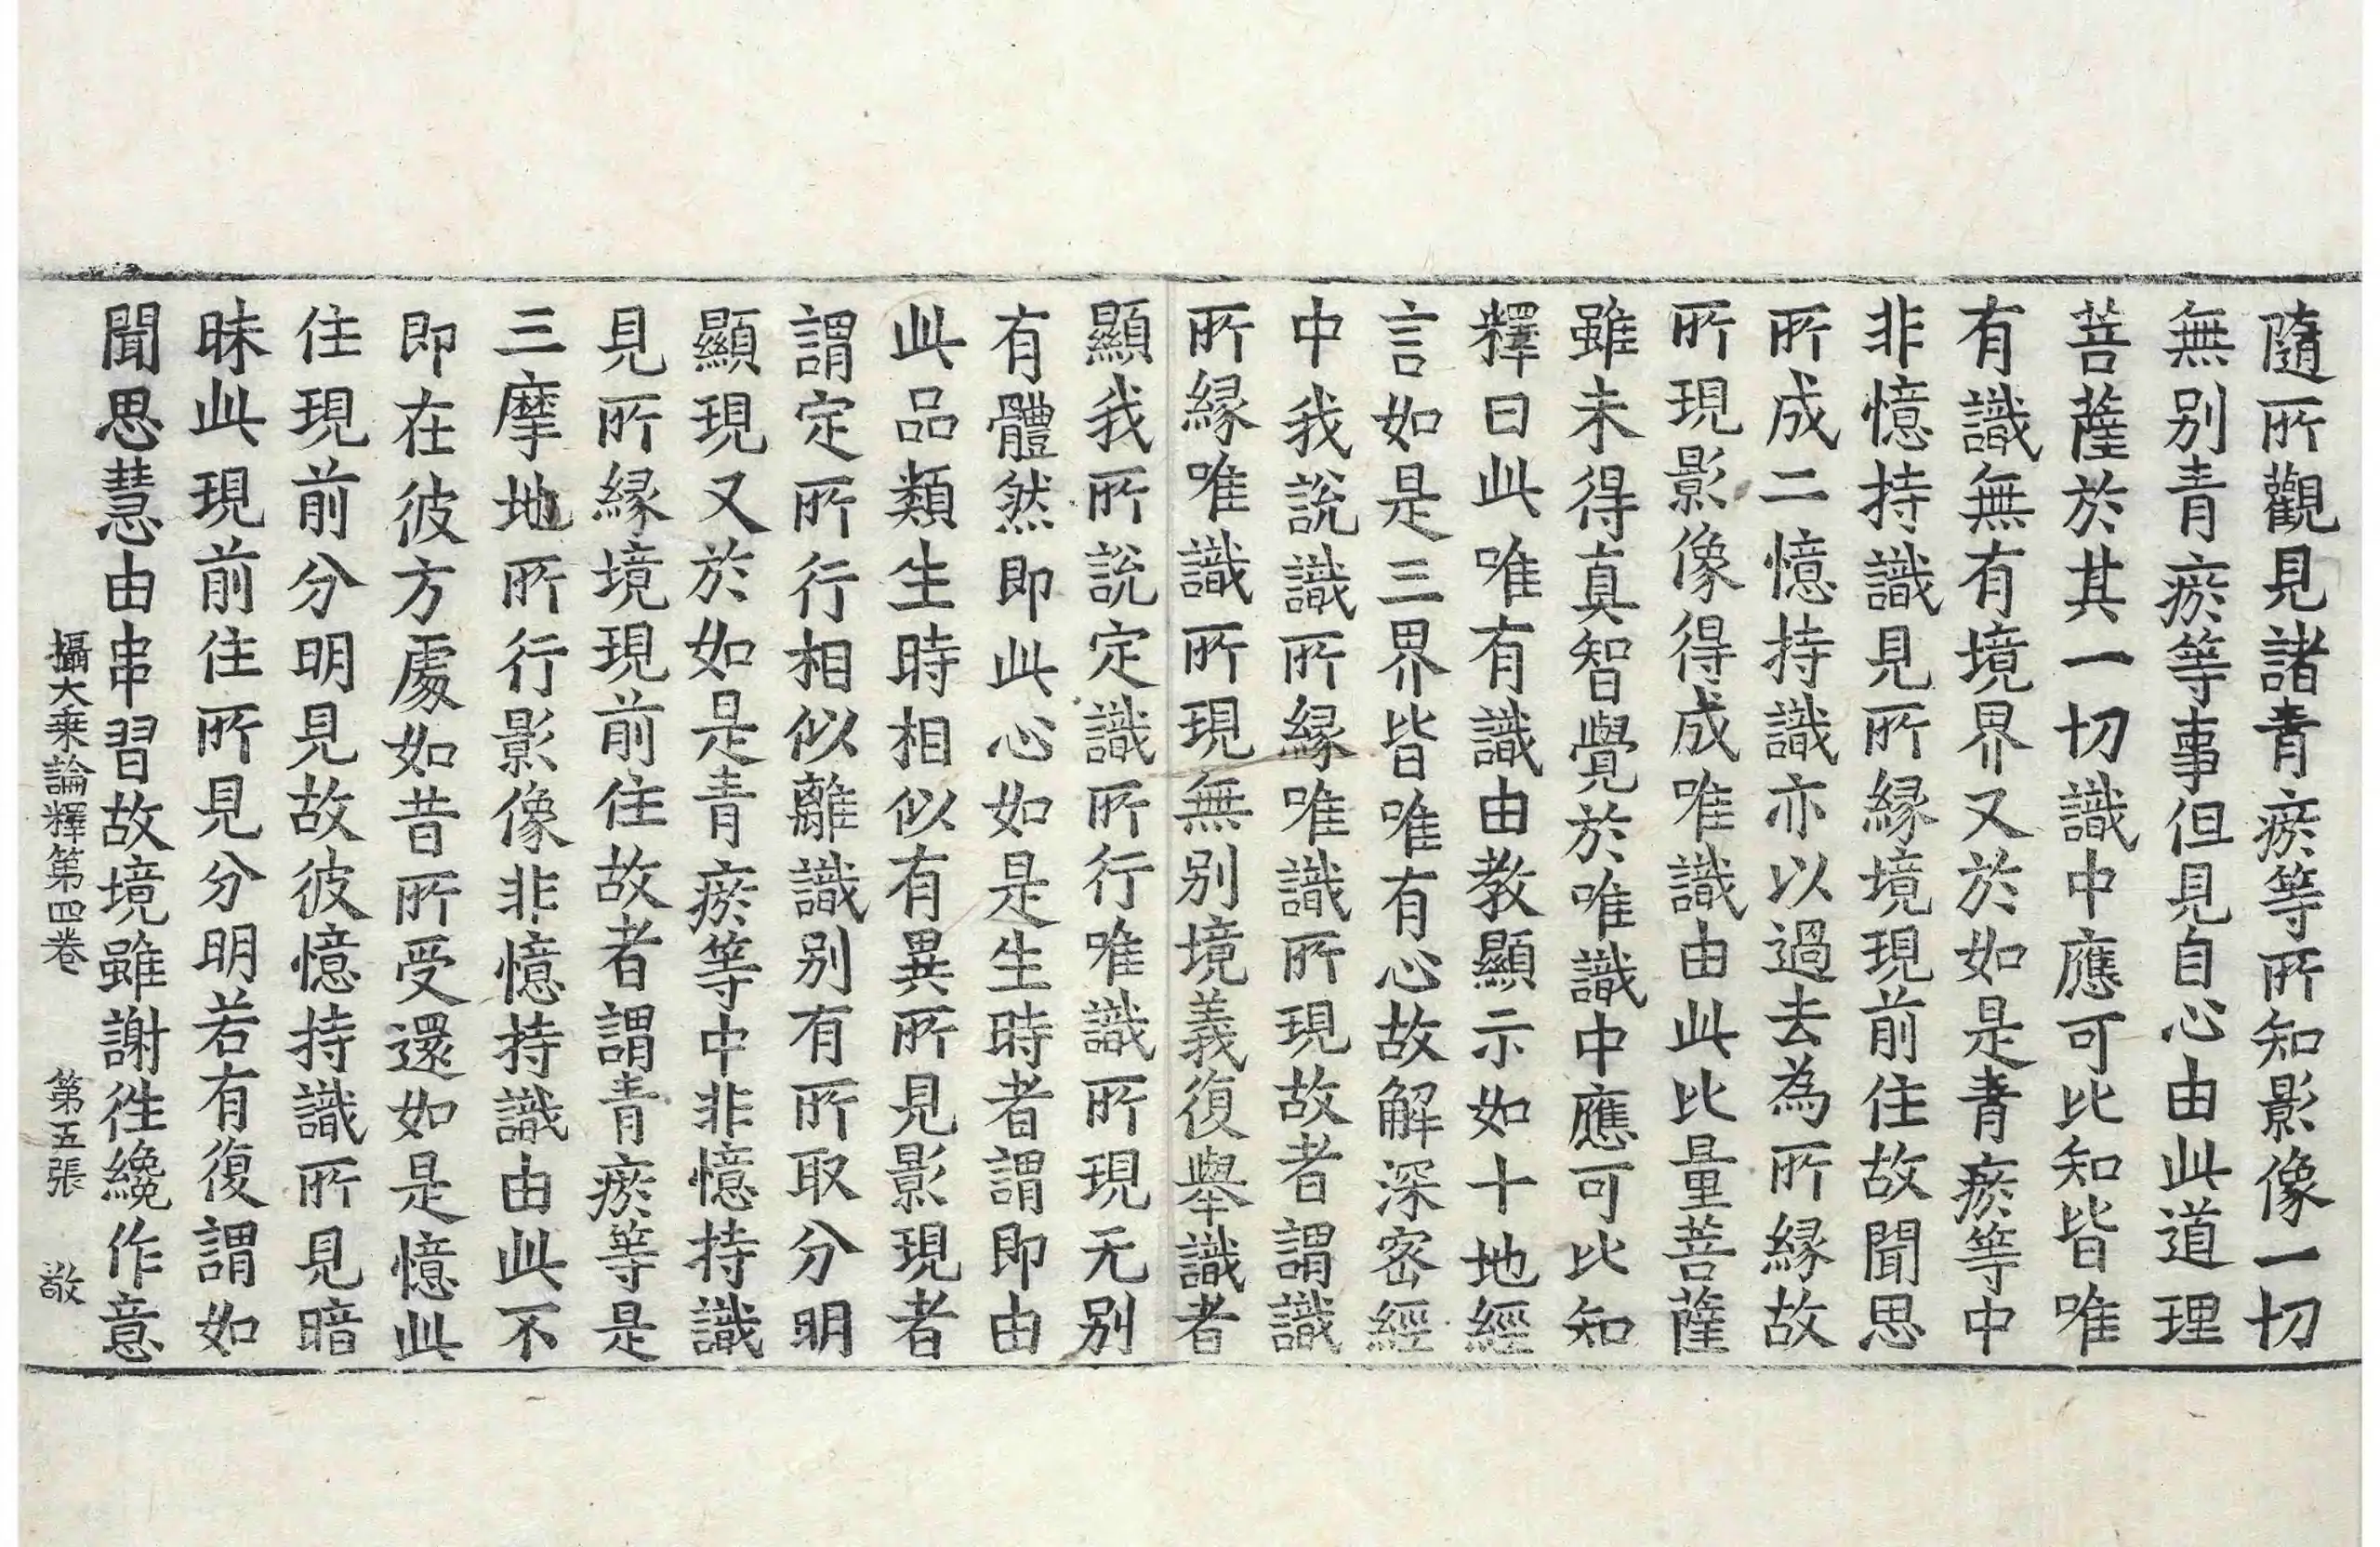 隨所觀見諸青瘀等所知影像一切
無别青瘀等事但見自心由此道理
菩薩於其一切識中應可比知皆唯
有識無有境界又於如是青瘀等中
非憶持識見所縁境現前住故聞思
所成二憶持識亦以過去為所縁故
所現影像得成唯識由此比量菩薩
雖未得真智覺於唯識中應可比知
釋曰此唯有識由教顯示如十地經
言如是三界皆唯有心故解深密經
中我說識所縁唯識所現故者謂識
所縁唯識所現無别境義復舉識者
顯我所說定識所行唯識所現无别
有體然即此心如是生時者謂即由
此品類生時相似有異所見影現者
謂定所行相似離識别有所取分明
顯現又於如是青瘀等中非憶持識
見所縁境現前住故者謂青瘀等是
三摩地所行影像非憶持識由此不
即在彼方處如昔所受還如是憶此
住現前分明見故彼憶持識所見暗
昧此現前住所見分明若有復謂如
聞思慧由串習故境雖謝徃纔作意
攝大乘論釋第四卷　第五張　敬